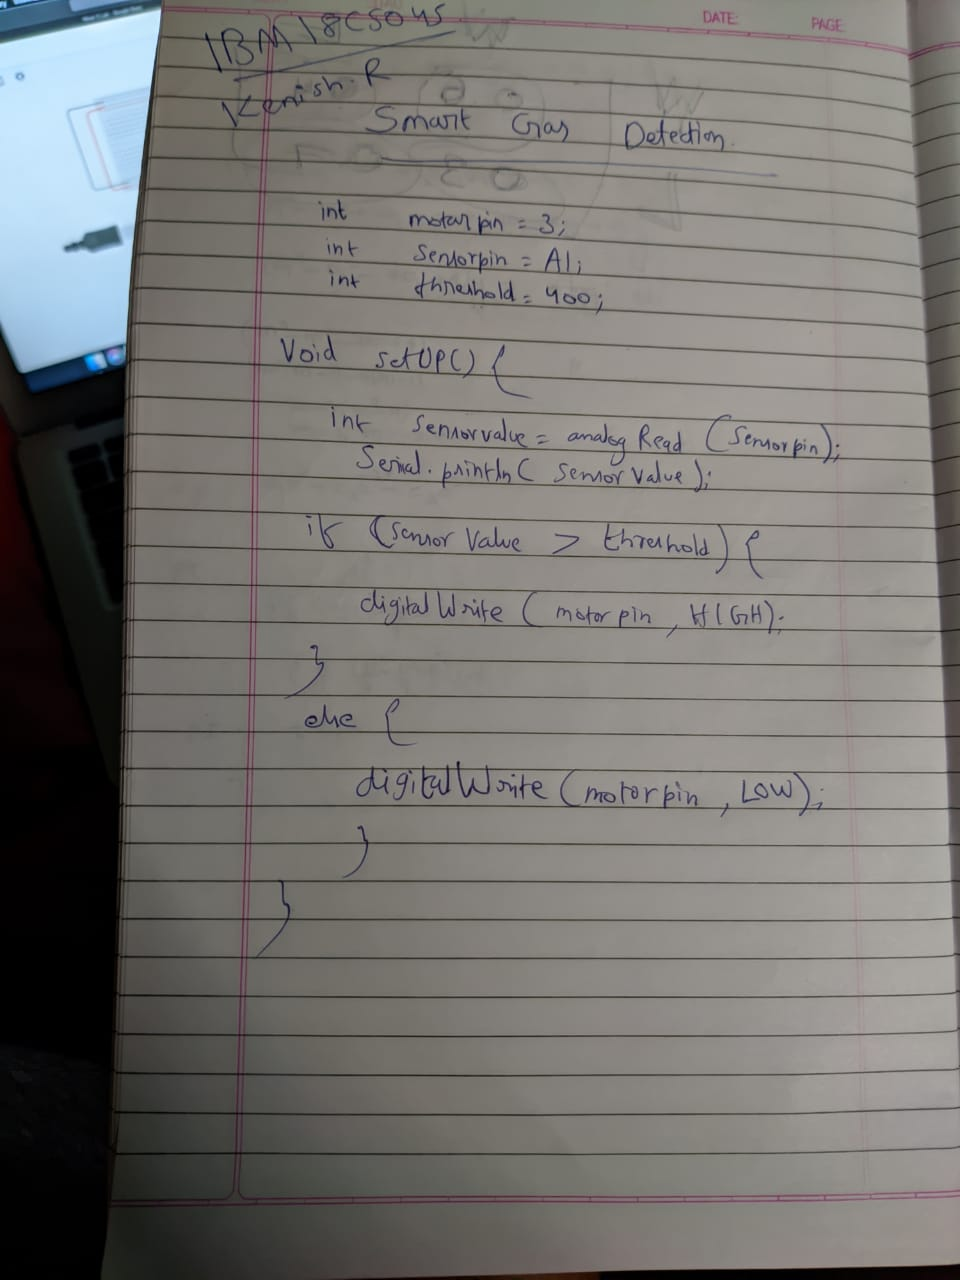 DATE: PAGE:
1BM18CS045
Kenish.R
Smart Gas Detection.
int motorpin = 3;
int Sensorpin = A1;
int threshold = 400;
Void setUP() {
int sensorvalue = analog Read (Sensorpin);
Serial.println( sensor value );
if (sensor value > threshold) {
digitalWrite ( motorpin , HIGH);
}
else {
digitalWrite (motorpin , LOW);
}
}